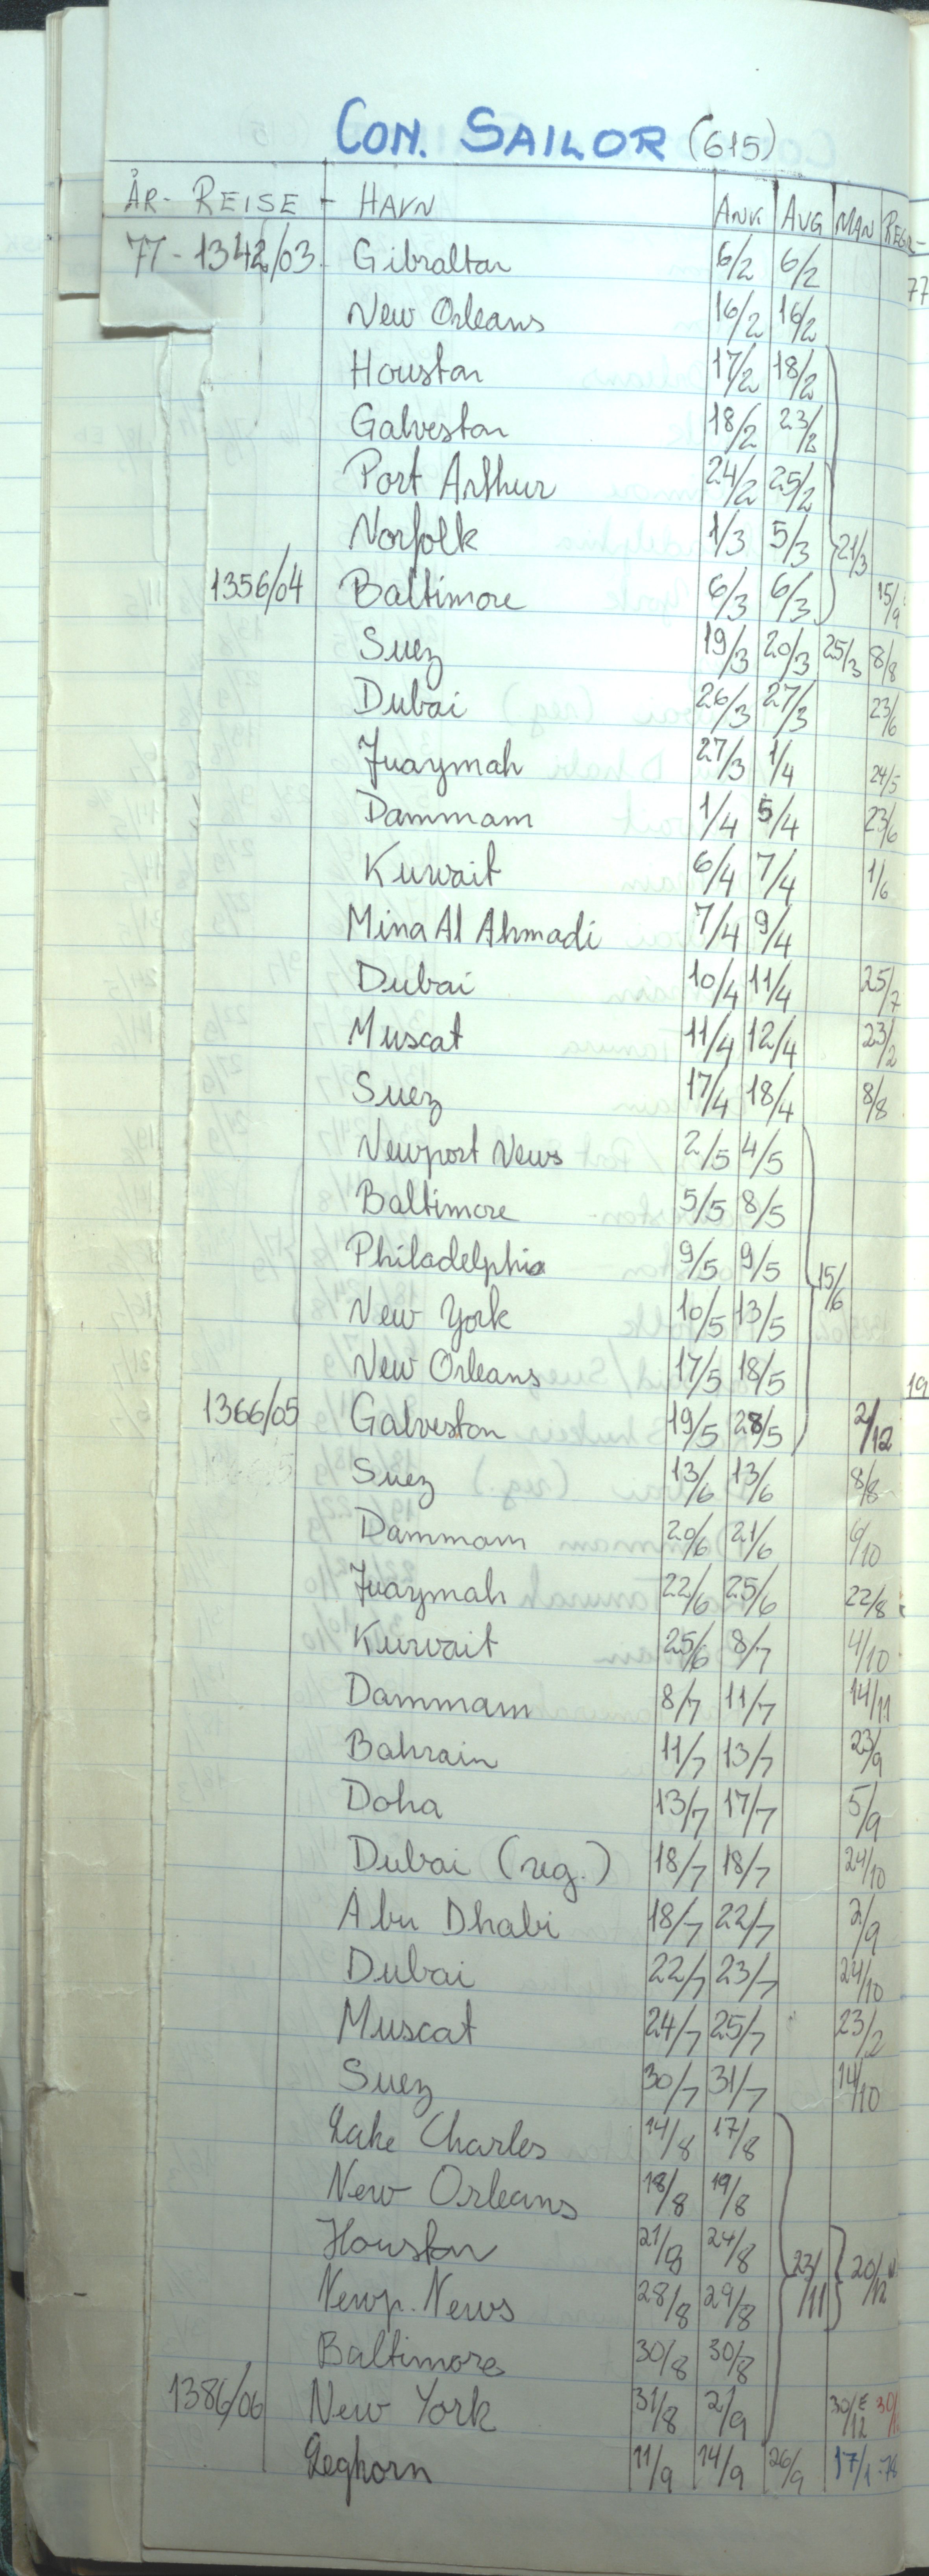 CON. SAILOR (615)
ÅR - REISE - HAVN ANK AVG MAN REGN
77 - 1342/03 Gibraltar 6/2 6/2
New Orleans 16/2 16/2
Houston 17/2 18/2
Galveston 18/2 23/2
Port Arthur 24/2 25/2
Norfolk 1/3 5/3 21/3
1356/04 Baltimore 6/3 6/3 15/9
Suez 19/3 20/3 25/3 8/8
Dubai 26/3 27/3 23/6
Juaymah 27/3 1/4 24/5
Dammam 1/4 5/4 23/6
Kuwait 6/4 7/4 1/6
Mina Al Ahmadi 7/4 9/4
Dubai 10/4 11/4 25/7
Muscat 11/4 12/4 23/2
Suez 17/4 18/4 8/8
Newport News 2/5 4/5
Baltimore 5/5 8/5
Philadelphia 9/5 9/5 15/6
New York 10/5 13/5
New Orleans 17/5 18/5
1366/05 Galveston 19/5 28/5 2/12
Suez 13/6 13/6 8/8
Dammam 20/6 21/6 6/10
Juaymah 22/6 25/6 22/8
Kuwait 25/6 8/7 4/10
Dammam 8/7 11/7 14/11
Bahrain 11/7 13/7 23/9
Doha 13/7 17/7 5/9
Dubai (reg.) 18/7 18/7 24/10
Abu Dhabi 18/7 22/7 2/9
Dubai 22/7 23/7 24/10
Muscat 24/7 25/7 23/2
Suez 30/7 31/7 14/10
Lake Charles 14/8 17/8
New Orleans 18/8 19/8
Houston 21/8 24/8 23/11 20/12
Newp. News 28/8 29/8
Baltimore 30/8 30/8
1386/06 New York 31/8 2/9 30/12
Leghorn 11/9 14/9 26/9 17/1-78
77
19